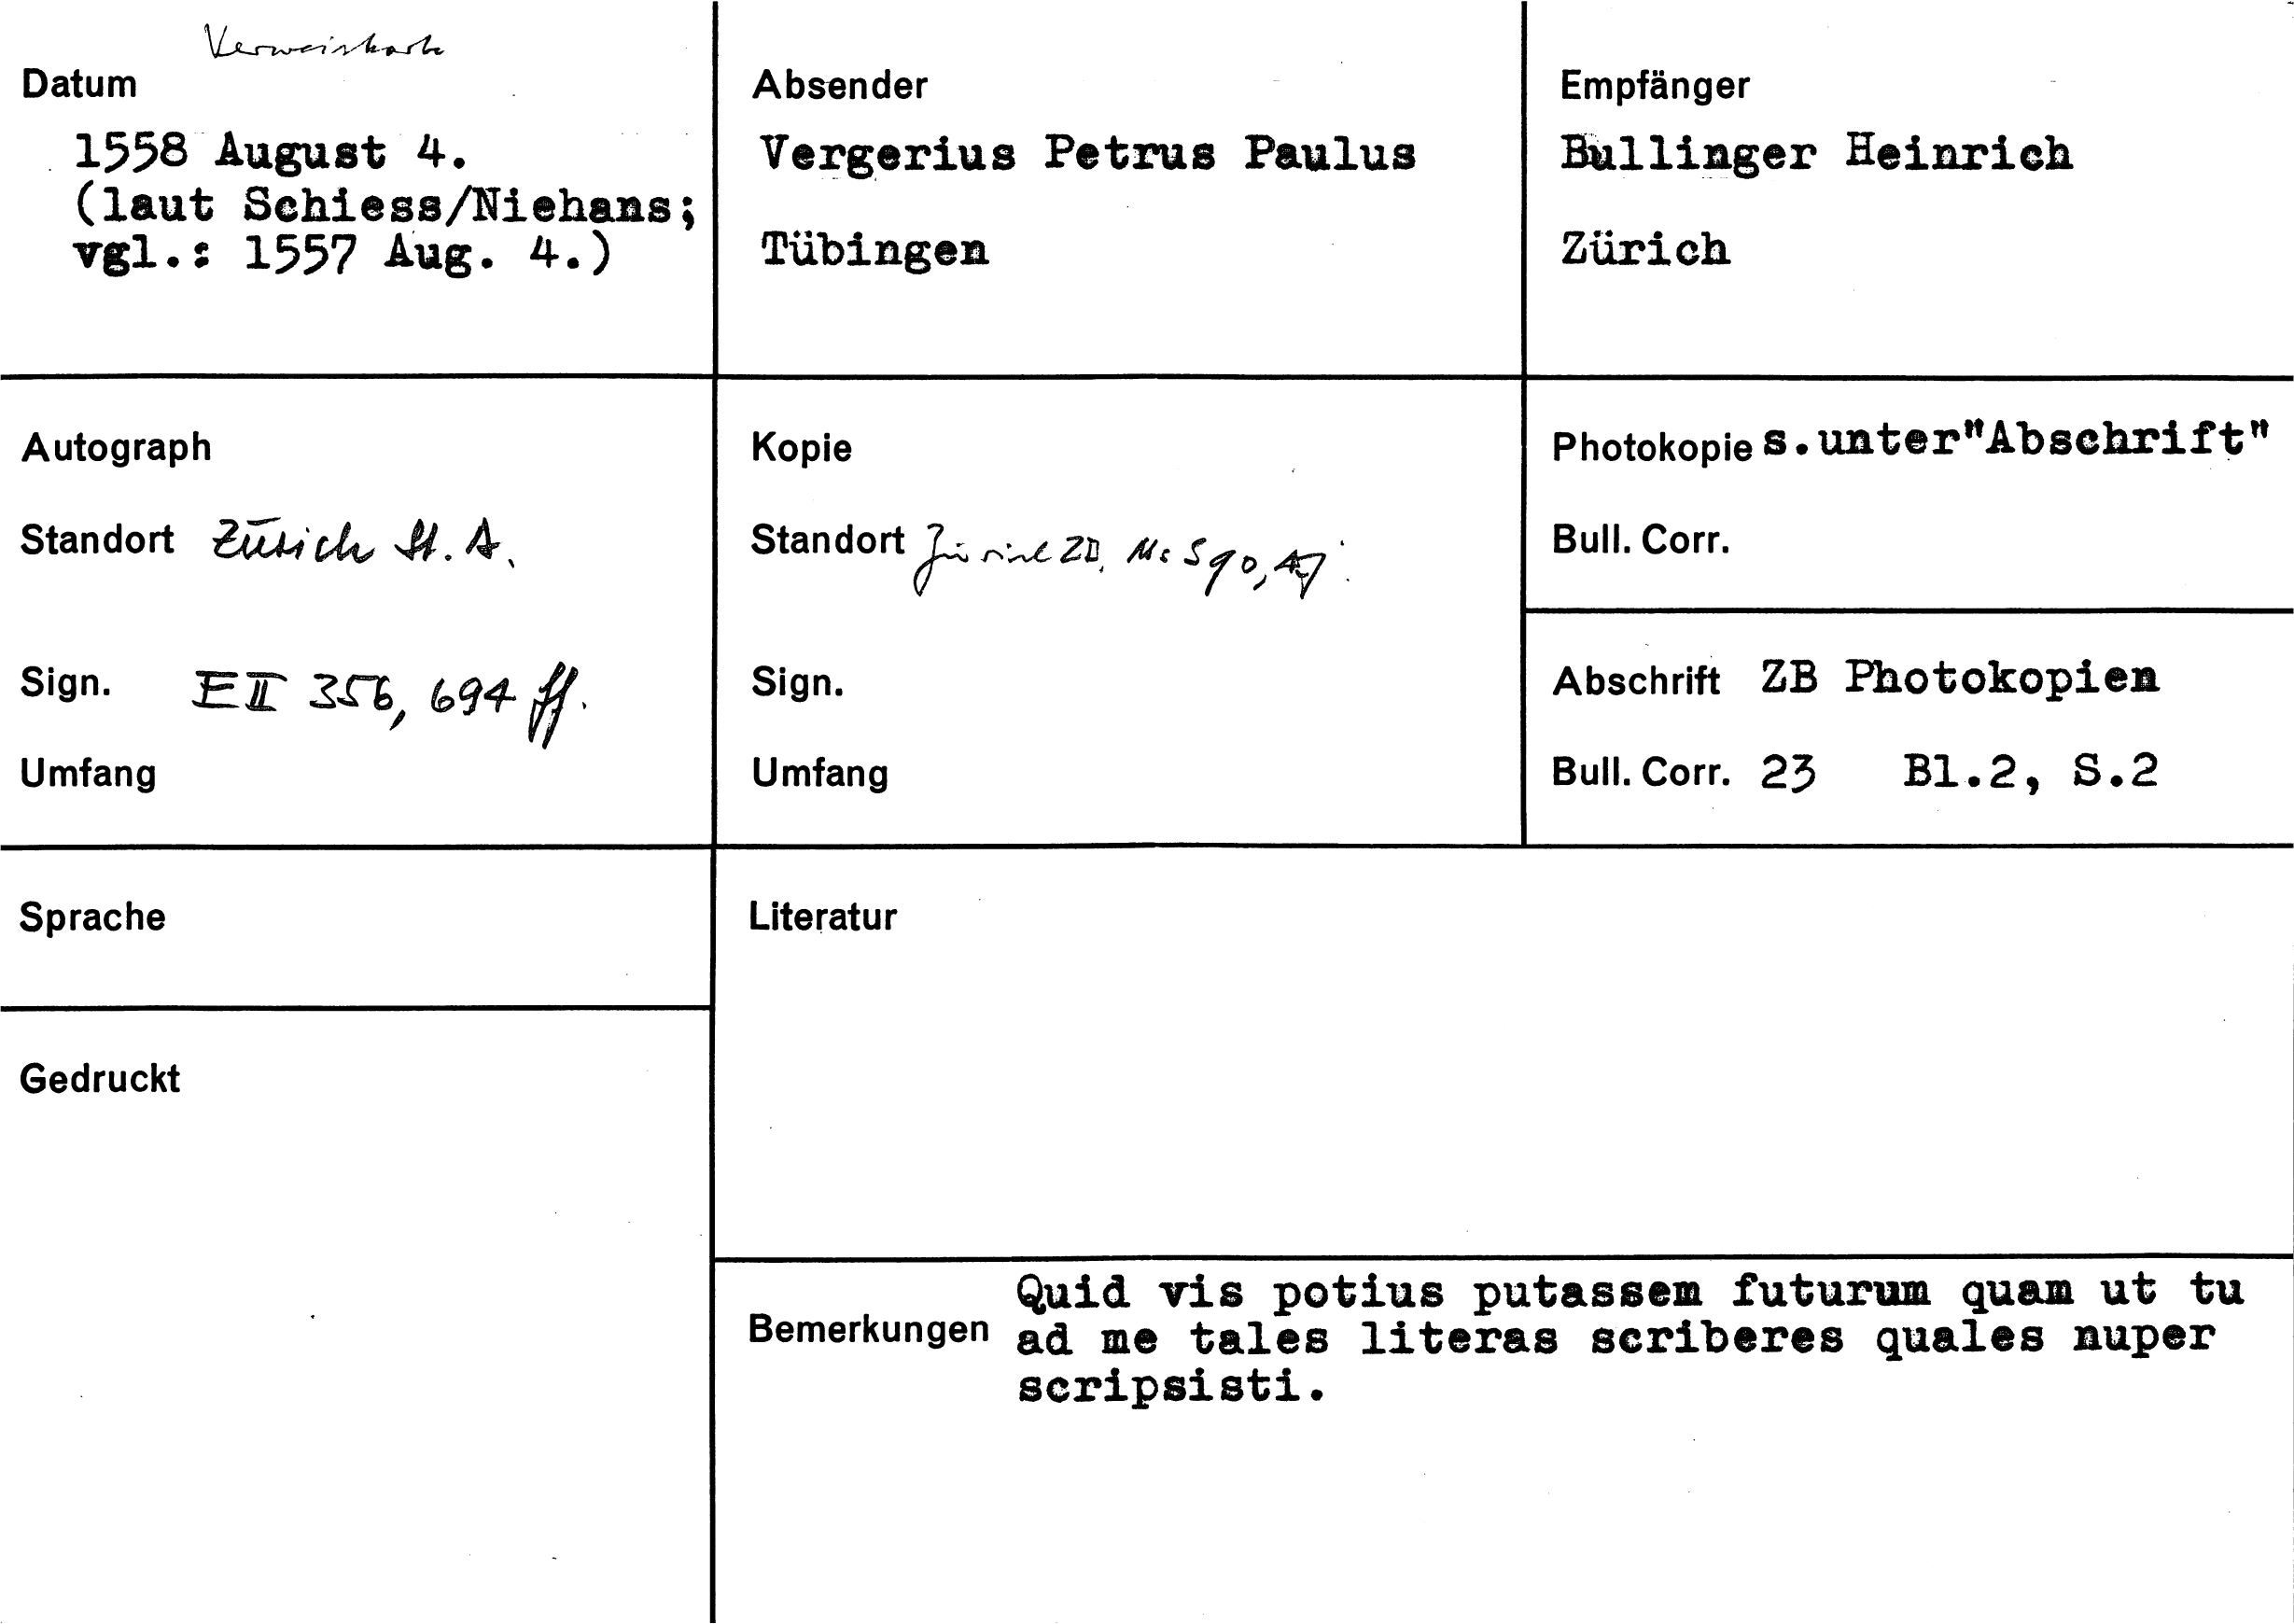 Verweiskarte
Datum
1558 August 4.
(laut Schiess/Niehans;
vgl.: 1557 Aug. 4.)
Absender
Vergerius Petrus Paulus
Tübingen
Empfänger
Bullinger Heinrich
Zürich
Autograph
Standort Zürich St. A.
Sign. E II 356, 694 ff.
Umfang
Kopie
Standort Zürich ZB, Ms S 90,
Sign.
Umfang
Photokopie s.unter"Abschrift"
Bull. Corr.
Abschrift ZB Photokopien
Bull. Corr. 23 Bl.2, S.2
Sprache
Gedruckt
Literatur
Bemerkungen
Quid vis potius putassem futurum quam ut tu
ad me tales literas scriberes quales nuper
scripsisti.